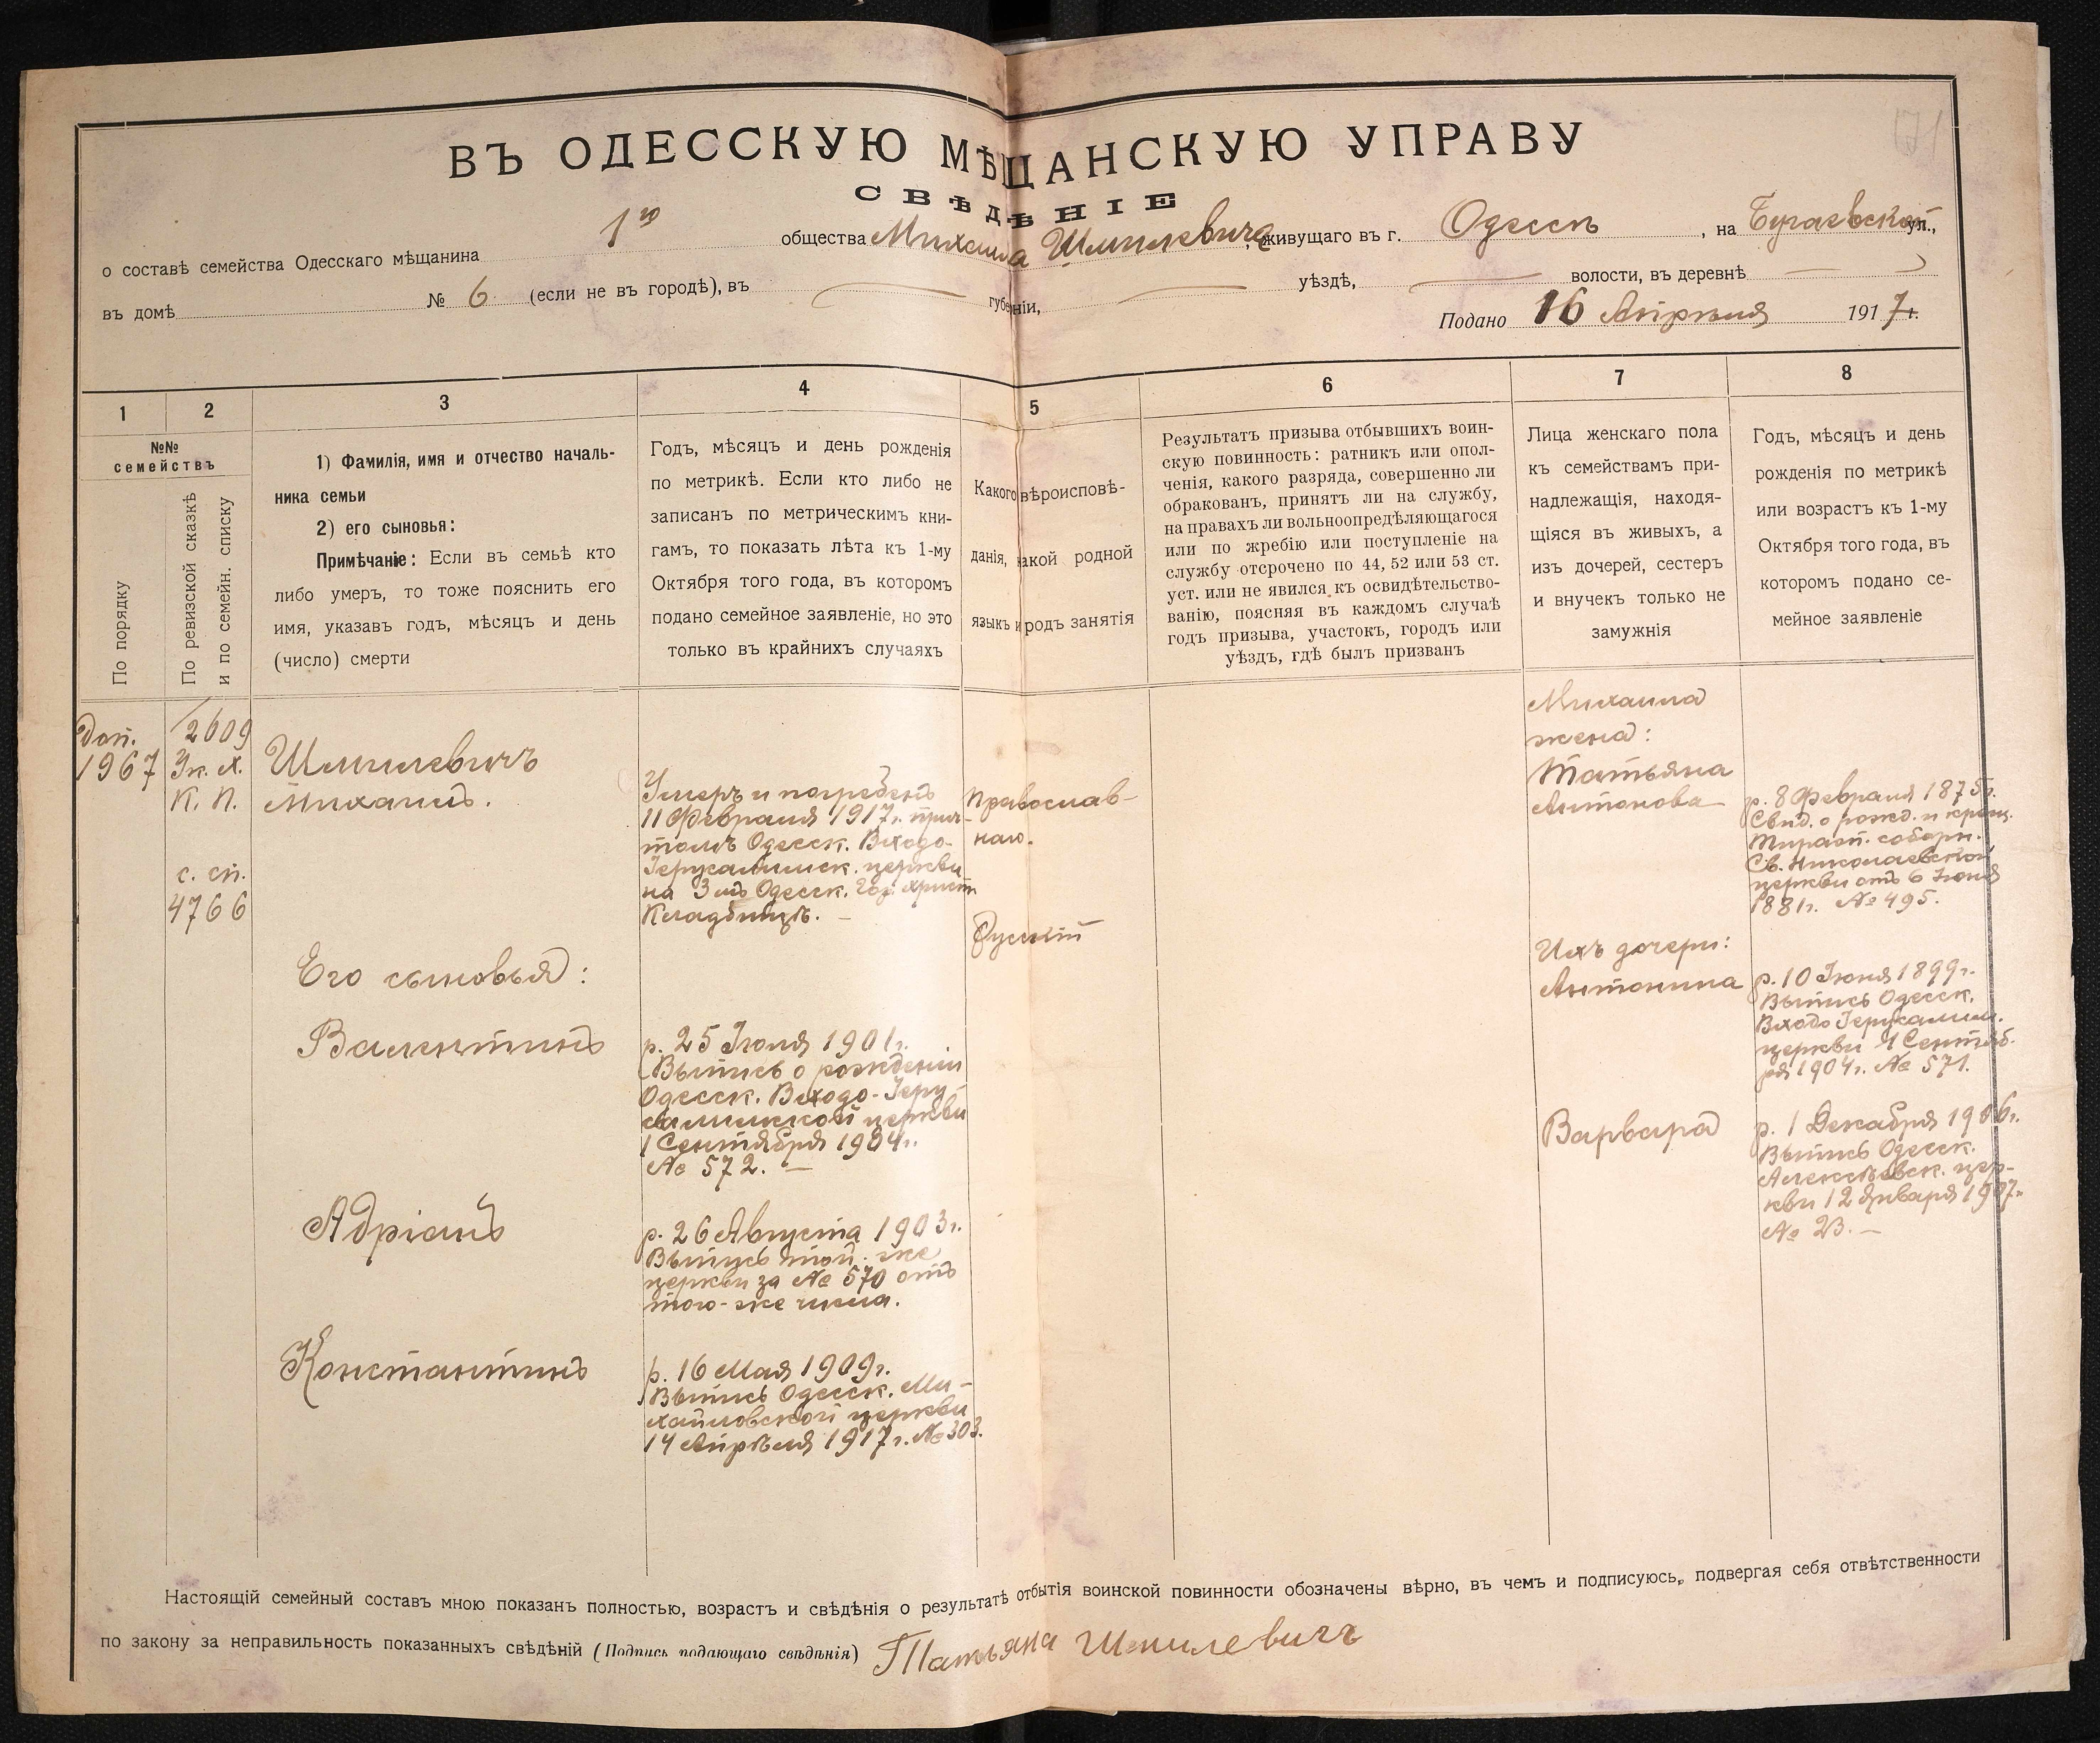 ВЪ ОДЕССКУЮ МѢЩАНСКУЮ УПРАВУ
СВѢДѢНІЕ
о составѣ семейства Одесскаго мѣщанина 1го общества Михаила Шмилевича, живущаго въ г. Одессѣ, на Бугаевской ул.,
въ домѣ № 6 (если не въ городѣ), въ — губерніи, — уѣздѣ, — волости, въ деревнѣ —
Подано 16 Апрѣля 1917 г.
1
2
3
4
5
6
7
8
№№
семействъ
По порядку
По ревизской сказкѣ
и по семейн. списку
1) Фамилія, имя и отчество началь-
ника семьи
2) его сыновья:
Примѣчаніе: Если въ семьѣ кто
либо умеръ, то тоже пояснить его
имя, указавъ годъ, мѣсяцъ и день
(число) смерти
Годъ, мѣсяцъ и день рожденія
по метрикѣ. Если кто либо не
записанъ по метрическимъ кни-
гамъ, то показать лѣта къ 1-му
Октября того года, въ которомъ
подано семейное заявленіе, но это
только въ крайнихъ случаяхъ
Какого вѣроисповѣ-
данія, какой родной
языкъ и родъ занятія
Результатъ призыва отбывшихъ воин-
скую повинность: ратникъ или опол-
ченія, какого разряда, совершенно ли
обракованъ, принятъ ли на службу,
на правахъ ли вольноопредѣляющагося
или по жребію или поступленіе на
службу отсрочено по 44, 52 или 53 ст.
уст. или не явился къ освидѣтельство-
ванію, поясняя въ каждомъ случаѣ
годъ призыва, участокъ, городъ или
уѣздъ, гдѣ былъ призванъ
Лица женскаго пола
къ семействамъ при-
надлежащія, находя-
щіяся въ живыхъ, а
изъ дочерей, сестеръ
и внучекъ только не
замужнія
Годъ, мѣсяцъ и день
рожденія по метрикѣ
или возрастъ къ 1-му
Октября того года, въ
которомъ подано се-
мейное заявленіе
Доп.
1967
2609
К. П.
с. сп.
4766
Шмилевичъ
Михаилъ.
Умеръ и погребенъ
11 Февраля 1917 г. прич-
томъ Одесск. Входо-
Іерусалимск. церкви
на 3мъ Одесск. Гор. Христ.
Кладбищѣ. —
Православ-
наго.
Русскій
Михаила
жена:
Татьяна
Антонова
р. 8 Февраля 1875 г.
Свид. о рожд. и крещ.
Тирасп. соборн.
Св. Николаевской
церкви отъ 6 Іюня
1881 г. № 495.
Его сыновья:
Валентинъ
р. 25 Іюля 1901 г.
Выпись о рожденіи
Одесск. Входо-Іеру-
салимской церкви
1 Сентября 1904 г.
№ 572. —
Адріанъ
р. 26 Августа 1903 г.
Выпись той-же
церкви за № 570 отъ
того-же числа.
Константинъ
р. 16 Мая 1909 г.
Выпись Одесск. Ми-
хайловской церкви
14 Апрѣля 1917 г. № 303.
Ихъ дочери:
Антонина
р. 10 Іюня 1899 г.
Выпись Одесск.
Входо Іерусалим.
церкви 1 Сентяб-
ря 1904 г. № 571.
Варвара
р. 1 Декабря 1906 г.
Выпись Одесск.
Алексѣевск. цер-
кви 12 Января 1907 г.
№ 23. —
Настоящій семейный составъ мною показанъ полностью, возрастъ и свѣдѣнія о результатѣ отбытія воинской повинности обозначены вѣрно, въ чемъ и подписуюсь, подвергая себя отвѣтственности
по закону за неправильность показанныхъ свѣдѣній (Подпись подающаго свѣдѣнія) Татьяна Шмилевичъ